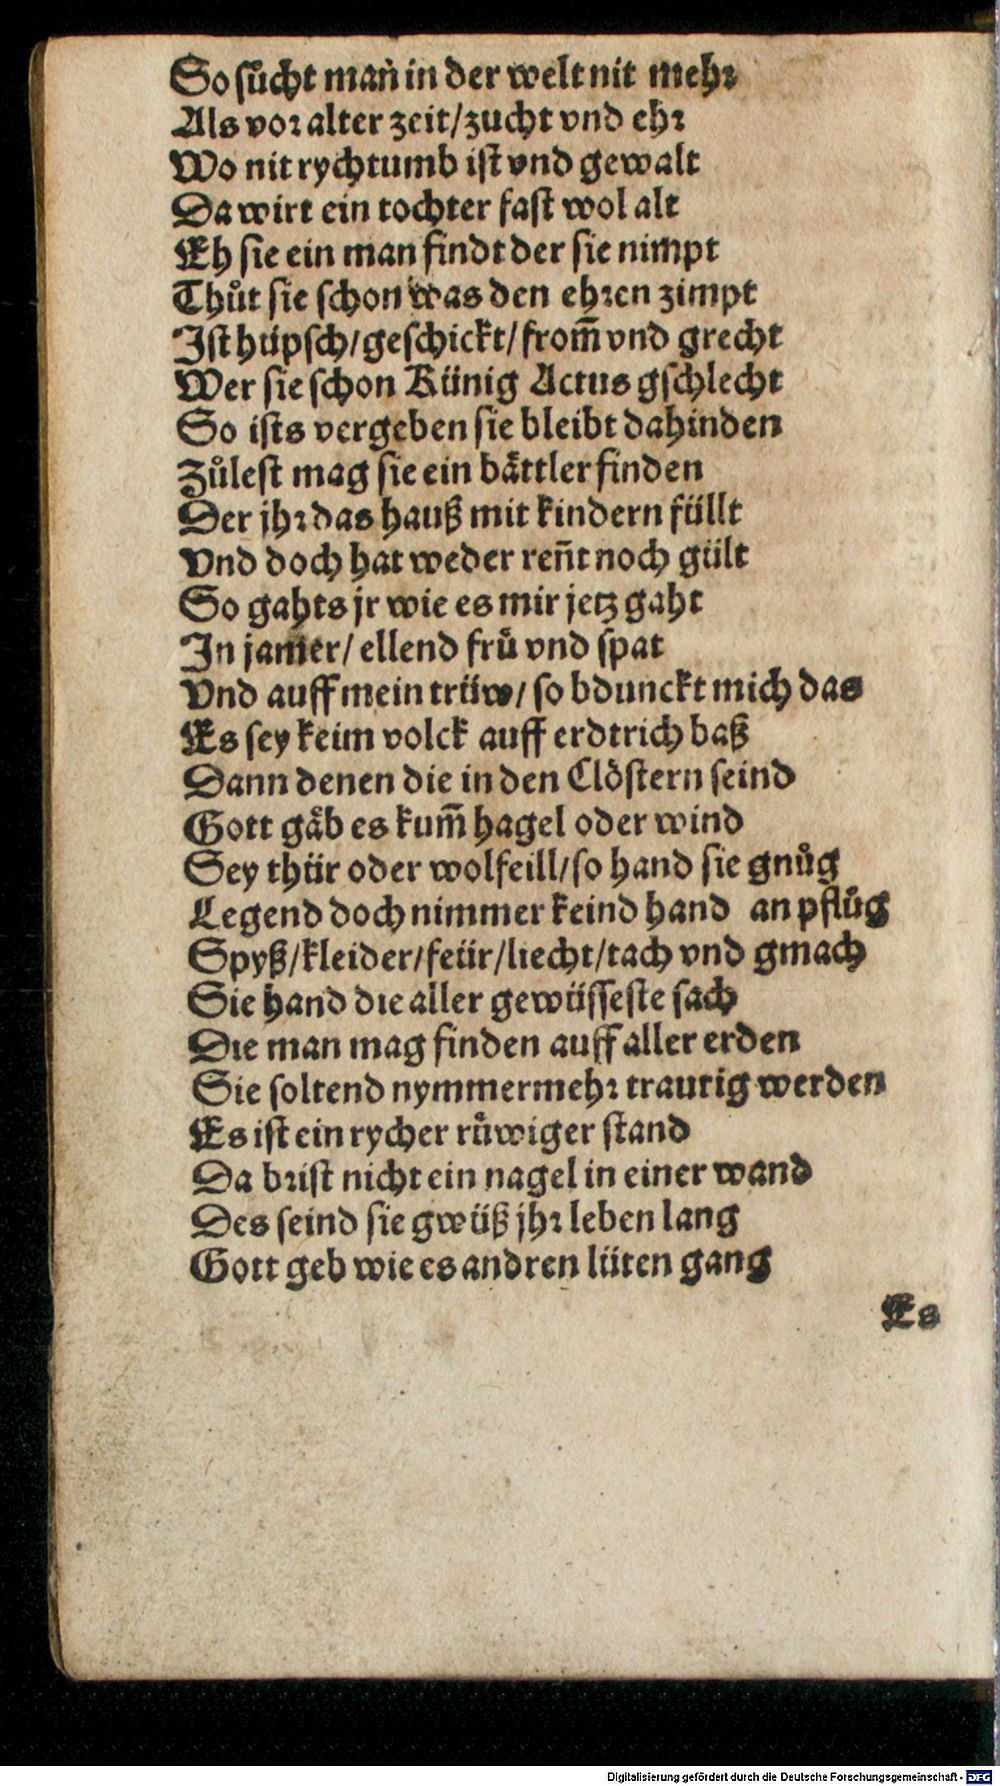 So suͦcht mañ in der welt nit mehr
Als vor alter zeit/zucht vnd ehr
Wo nit rychtumb ist vnd gewalt
Da wirt ein tochter fast wol alt
Eh sie ein man findt der sie nimpt
Thuͦt sie schon was den ehren zimpt
Ist hüpsch/geschickt/from̃ vnd grecht
Wer sie schon Künig Actus gschlecht
So ists vergeben sie bleibt dahinden
Zuͦlest mag sie ein baͤttler finden
Der jhr das hauß mit kindern füllt
Vnd doch hat weder reñt noch gült
So gahts jr wie es mir jetz gaht
In jam̃er/ ellend fruͤ vnd spat
Vnd auff mein trüw/ so bdunckt mich das
Es sey keim volck auff erdtrich baß
Dann denen die in den Cloͤstern seind
Gott gaͤb es kum̃ hagel oder wind
Sey thür oder wolfeill/so hand sie gnuͦg
Legend doch nimmer keind hand an pfluͦg
Spyß/kleider/feür/liecht/tach vnd gmach
Sie hand die aller gewüsseste sach
Die man mag finden auff aller erden
Sie soltend nymmermehr traurig werden
Es ist ein rycher ruͤwiger stand
Da brist nicht ein nagel in einer wand
Des seind sie gwüß jhr leben lang
Gott geb wie es andren lüten gang
Es
Digitalisierung gefördert durch die Deutsche Forschungsgemeinschaft - DFG